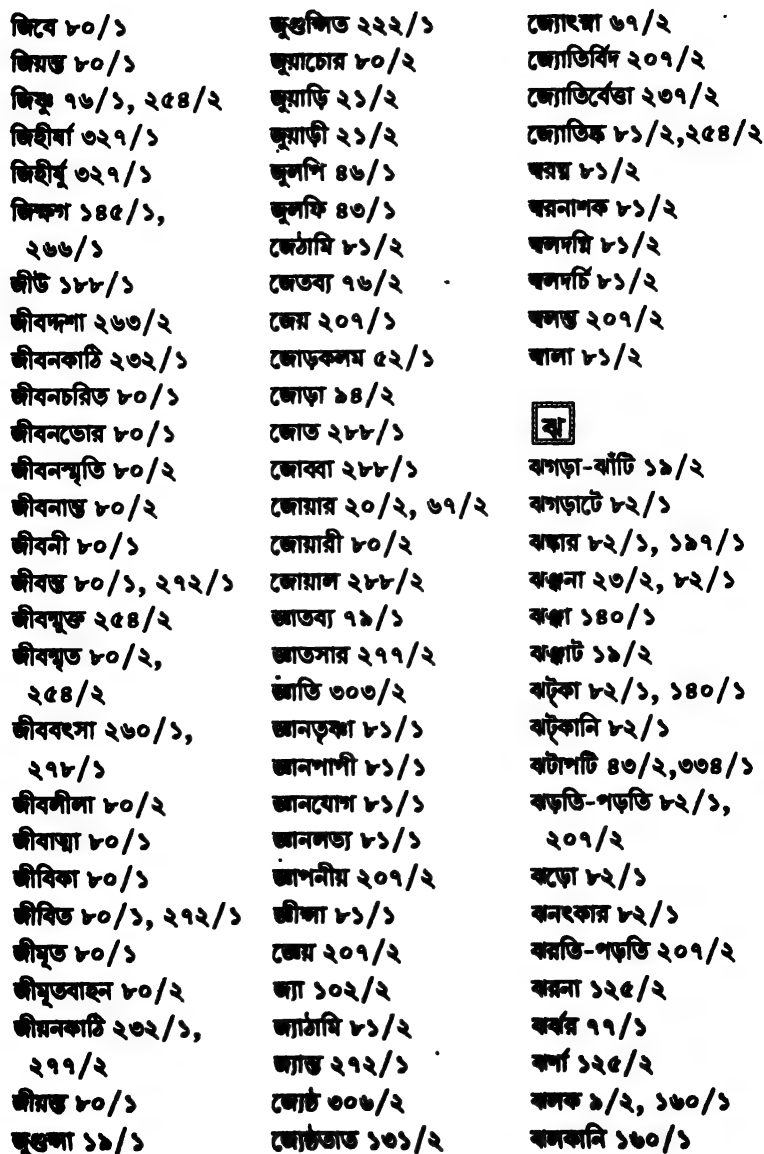 জিবে ৮০/১
জিয়ন্ত ৮০/১
জিষ্ণু ৭৬/১, ২৫৪/২
জিহীর্ষা ৩২৭/১
জিহীর্ষু ৩২৭/১
জিহ্মগ ১৪৫/১,
২৬৬/১
জীউ ১৮৮/১
জীবদ্দশা ২৬৩/২
জীবনকাঠি ২৩২/১
জীবনচরিত ৮০/১
জীবনডোর ৮০/১
জীবনস্মৃতি ৮০/২
জীবনান্ত ৮০/২
জীবনী ৮০/১
জীবন্ত ৮০/১, ২৭২/১
জীবন্মুক্ত ২৫৪/২
জীবন্মৃত ৮০/২,
২৫৪/২
জীববৎসা ২৬০/১,
২৭৮/১
জীবলীলা ৮০/২
জীবাত্মা ৮০/১
জীবিকা ৮০/১
জীবিত ৮০/১, ২৭২/১
জীমূত ৮০/১
জীমূতবাহন ৮০/২
জীয়নকাঠি ২৩২/১,
২৭৭/২
জীয়ন্ত ৮০/১
জুগুপ্সা ১৯/১
জুগুপ্সিত ২২২/১
জুয়াচোর ৮০/২
জুয়াড়ি ২১/২
জুয়াড়ী ২১/২
জুলপি ৪৬/১
জুলফি ৪৩/১
জেঠামি ৮১/২
জেতব্য ৭৬/২
জেয় ২০৭/১
জোড়কলম ৫২/১
জোড়া ৯৪/২
জোত ২৮৮/১
জোব্বা ২৮৮/১
জোয়ার ২০/২, ৬৭/২
জোয়ারী ৮০/২
জোয়াল ২৮৮/২
জ্ঞাতব্য ৭৯/১
জ্ঞাতসার ২৭৭/২
জ্ঞাতি ৩০৩/২
জ্ঞানতৃষ্ণা ৮১/১
জ্ঞানপাপী ৮১/১
জ্ঞানযোগ ৮১/১
জ্ঞানলভ্য ৮১/১
জ্ঞাপনীয় ২০৭/২
জ্ঞীপ্সা ৮১/১
জ্ঞেয় ২০৭/২
জ্যা ১০২/২
জ্যাঠামি ৮১/২
জ্যান্ত ২৭২/১
জ্যেষ্ঠ ৩০৬/২
জ্যেষ্ঠতাত ১৩১/২
জ্যোৎস্না ৬৭/২
জ্যোতির্বিদ ২০৭/২
জ্যোতির্বেত্তা ২৩৭/২
জ্যোতিষ্ক ৮১/২,২৫৪/২
জ্বরঘ্ন ৮১/২
জ্বরনাশক ৮১/২
জ্বলদগ্নি ৮১/২
জ্বলদর্চি ৮১/২
জ্বলন্ত ২০৭/২
জ্বালা ৮১/২
ঝ
ঝগড়া-ঝাঁটি ১৯/২
ঝগড়াটে ৮২/১
ঝঙ্কার ৮২/১, ১৯৭/১
ঝঞ্ঝনা ২৩/২, ৮২/১
ঝঞ্ঝা ১৪০/১
ঝঞ্ঝাট ১৯/২
ঝট্‌কা ৮২/১, ১৪০/১
ঝট্‌কানি ৮২/১
ঝটাপটি ৪৩/২,৩৩৪/১
ঝড়তি-পড়তি ৮২/১,
২০৭/২
ঝড়ো ৮২/১
ঝনৎকার ৮২/১
ঝরতি-পড়তি ২০৭/২
ঝরনা ১২৫/২
ঝর্ঝর ৭৭/১
ঝর্ণা ১২৫/২
ঝলক ৯/২, ১৬০/১
ঝলকানি ১৬০/১